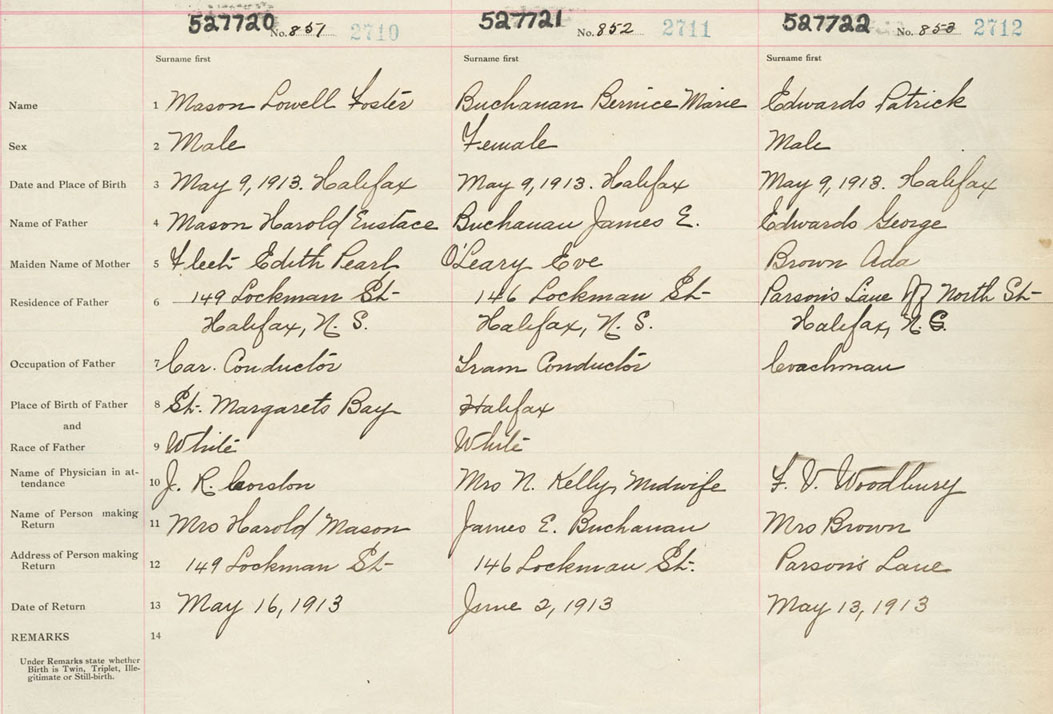 527720 No. 857 2710 527721 No. 852 2711 527722 No. 853 2712
Surname first Surname first Surname first
Name 1 Mason Lowell Foster Buchanan Bernice Marie Edwards Patrick
Sex 2 Male Female Male
Date and Place of Birth 3 May 9, 1913. Halifax May 9, 1913. Halifax May 9, 1913. Halifax
Name of Father 4 Mason Harold Eustace Buchanan James E. Edwards George
Maiden Name of Mother 5 Fleet Edith Pearl O'Leary Eve Brown Ada
Residence of Father 6 149 Lockman St- 146 Lockman St- Parson's Lane Off North St-
Halifax, N. S. Halifax, N. S. Halifax, N. S.
Occupation of Father 7 Car. Conductor Tram Conductor Coachman
Place of Birth of Father 8 St. Margarets Bay Halifax
and
Race of Father 9 White White
Name of Physician in at-
tendance 10 J. R. Corston Mrs N. Kelly, Midwife F. V. Woodbury
Name of Person making
Return 11 Mrs Harold Mason James E. Buchanan Mrs Brown
Address of Person making
Return 12 149 Lockman St- 146 Lockman St. Parson's Lane
Date of Return 13 May 16, 1913 June 2, 1913 May 13, 1913
REMARKS 14
Under Remarks state whether
Birth is Twin, Triplet, Ille-
gitimate or Still-birth.